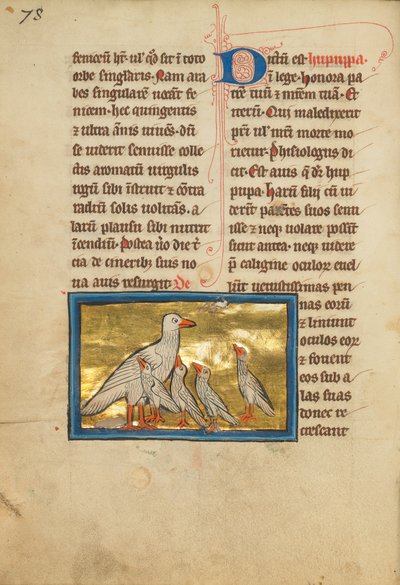 78
fenicem hr̄. ul' qđ sit ī toto
orbe singlaris. Nam ara
bes singularē uocāt fe
nicem. hec quingentis
⁊ ultra ānis uiuēs. dū
se uiderit senuisse colle
ctis aromatū uirgulis
rogū sibi īstruit ⁊ cōtra
radiū solis uolitās. a
larū plausu sibi nutrit
īcendiū. Postea ůo die t̄
cia de cineribꝫ suis no
ua auis resurgit. De
Dictū est hupupa.
ī lege. honora pa
trē tuū ⁊ mrēm tuā. Et
iterū. Qui maledixerit
pr̄i ul' mr̄i morte mo
rietur. Phisiologus di
cit. Est auis q̄ dr̄ hup
pupa. harū filii cū ui
derīt parētes suos senu
isse ⁊ neqꝫ uolare possīt
sicut antea. neqꝫ uidere
p̄ caligine oculoꝝ euel
lūt uetustissimas pen
nas eorū
⁊ liniunt
oculos eoꝝ
⁊ fouent
eos sub a
las suas
donec re
crescant